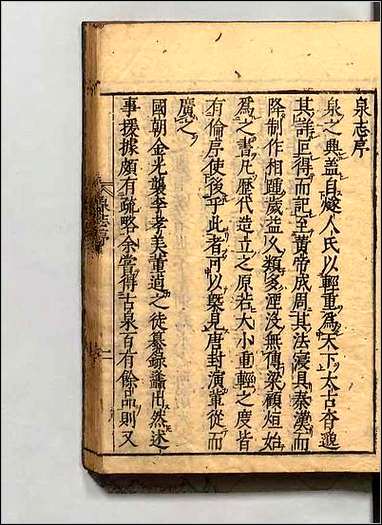 泉志序
泉之興蓋自燧人氏以輕重爲天下太古杳邈
其詳叵得而記至黄帝成周其法寖具秦漢而
降制作相踵歲益久類多湮没無傳梁顧烜始
爲之書凡歷代造立之原若大小重輕之度皆
有倫序使後乎此者可以槩見唐封演輩從而
廣之
國朝金光襲李孝美董逌之徒纂録蠭出然述
事援據頗有疏略余嘗得古泉百有餘品則又
泉志序